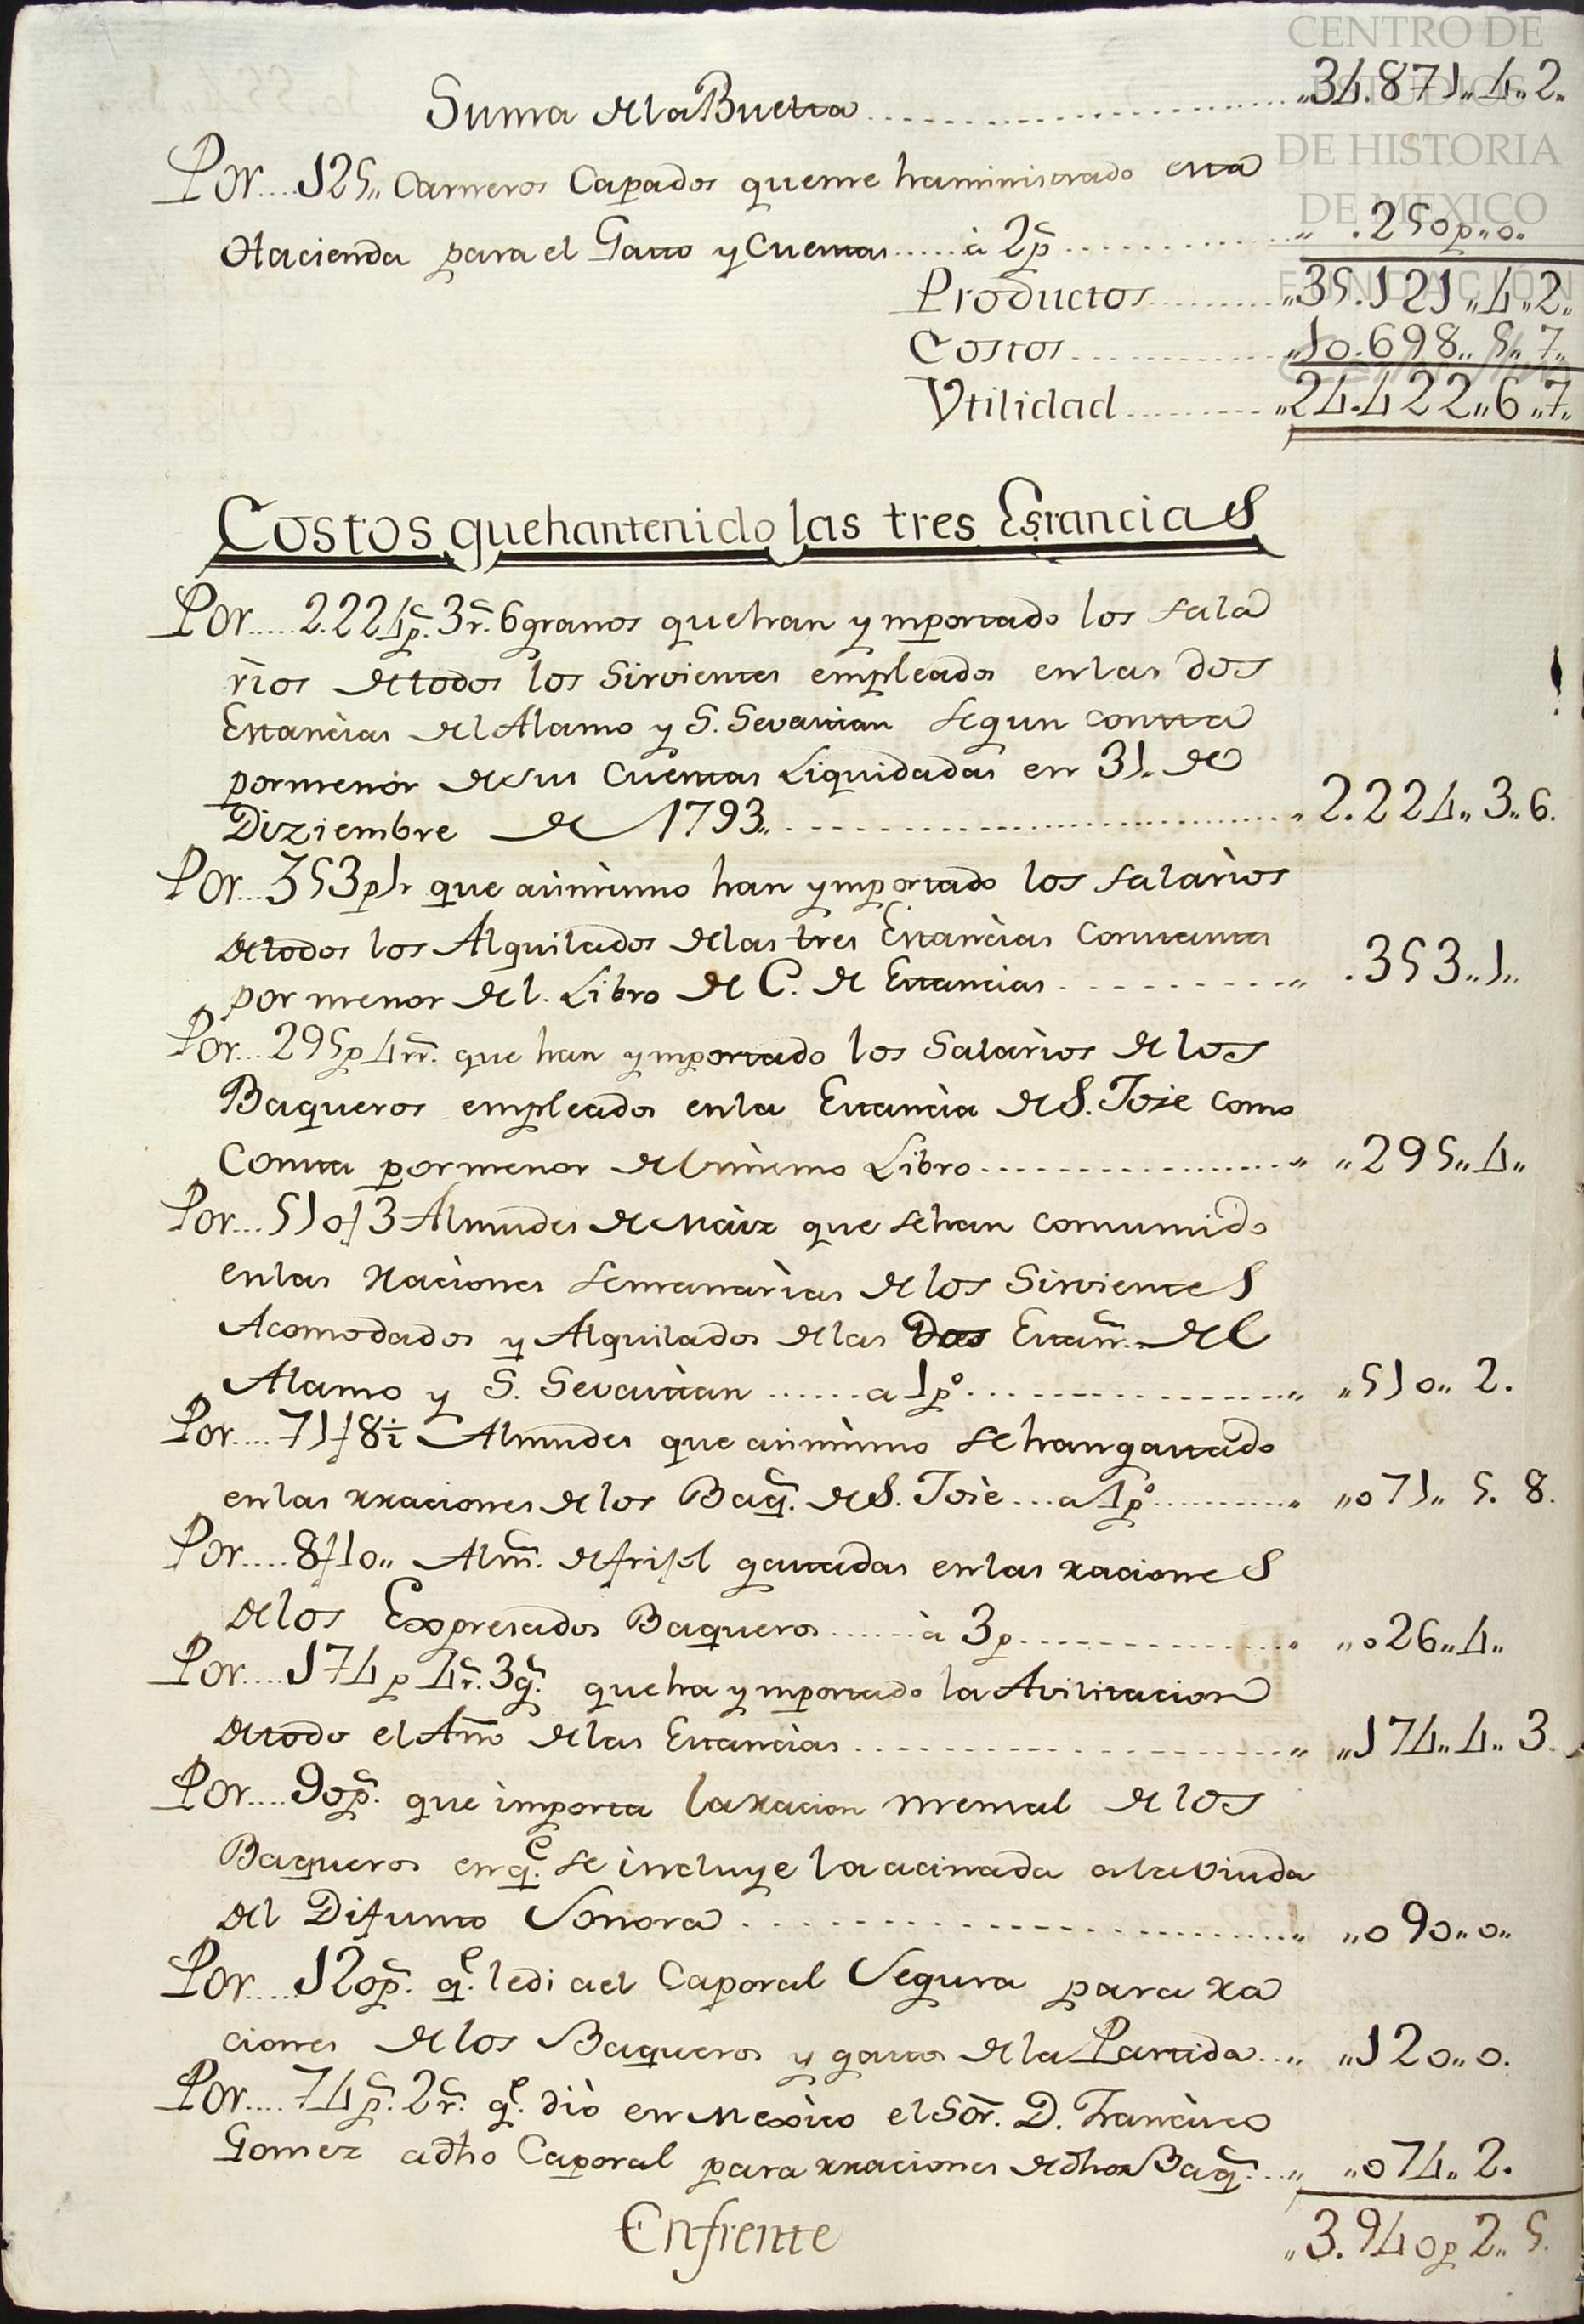 CENTRO DE
ESTUDIOS
DE HISTORIA
DE MEXICO
FUNDACIÓN
Suma de la Buelta.................... „34.871„4„2.
Por....125„ Carneros Capados queme ha ministrado esta
Hacienda para el Gasto y Cuentas......à 2p̃............... „ .250p„o.
Productos........... „35.121„4„2„
Costos............... „10.698„5„7„
Vtilidad............ „24.422„6„7„
Costos que han tenido las tres Estancias
Por.....2.224p̃. 3r̃. 6granos que han ymportado los sala
rios de todos los Sirvientes empleados en las dos
Estancias del Alamo y S. Sevastian segun consta
pormenor de sus Cuentas Liquidadas en 31. de
Diziembre de 1793„............................ „ 2.224„3„6.
Por...353p1r que asimismo han ymportado los salarios
de todos los Alquilados de las tres Estancias Constantes
por menor del. Libro de C. de Estancias............ „ .353„1„
Por...295p4rr̃. que han ymportado los Salarios de los
Baqueros empleados en la Estancia de S. Jose como
Consta pormenor del mismo Libro................... „ „295„4„
Por...510f3 Almudes de Maiz que se han consumido
en las Raciones semanarias de los Sirvientes
Acomodados y Alquilados de las Dos Estan̄. del
Alamo y S. Sevastian.......a 1p°.................... „ „510„ 2.
Por....71f8½ Almudes que asimismo se han gastado
en las rraciones de los Baq̃. de S. Jose...a 1p°........... „ „o71„ 5. 8.
Por.....8f10„ Alm̃. de frisol gastadas en las raciones
de los Expresados Baqueros.......à 3p................. „ „o26„4„
Por....174p 4r̃. 3g̃. que ha ymportado la Avilitacion
de todo el Año de las Estancias...................... „ „174„4„3.
Por....90p̃. que importa la racion mensal de los
Baqueros en q.e se incluye la acinada a la viuda
del Difunto Sonora ........................... „ „o90„o„
Por.....120p̃. q.e le di a el Caporal Segura para ra
ciones de los Baqueros y gastos de la Partida... „ „120„o.
Por....74p̃. 2r̃. q.e diò en Mexico el Sōr. D. Francisco
Gomez a dho Caporal para rraciones de dhos Baq̃.... „ „o74„2.
Enfrente „3.940p2„5.